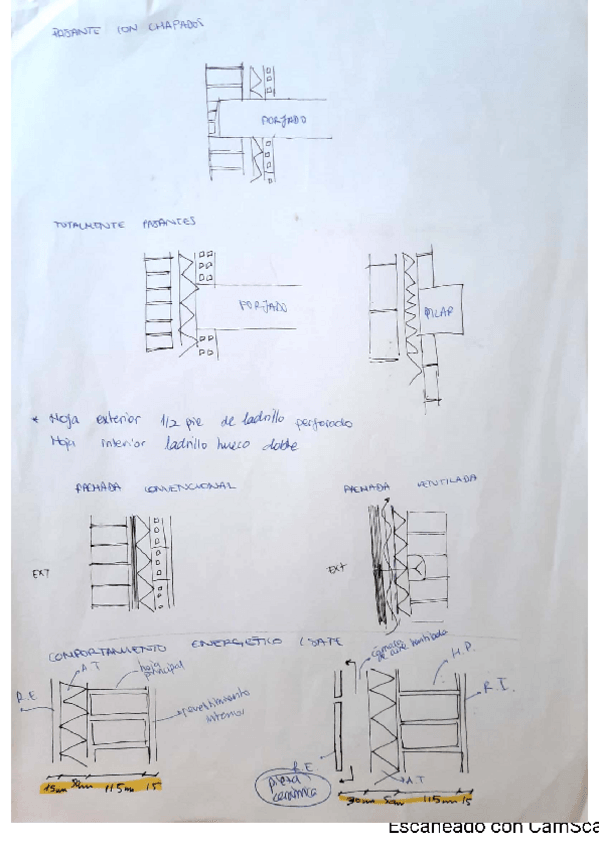 PASANTE CON CHAPADOS
FORJADO
TOTALMENTE PASANTES
FORJADO
PILAR
* Hoja exterior 1/2 pie de ladrillo perforado
Hoja interior ladrillo hueco doble
FACHADA CONVENCIONAL
FACHADA VENTILADA
EXT
EXT
COMPORTAMIENTO ENERGÉTICO (SATE
R.E
A.T
hoja principal
revestimiento interior
cámara de aire ventilada
H.P.
R.I.
R.E
pieza cerámica
A.T
15mm 5cm 115mm 15
30mm 5cm 115mm 15
Escaneado con CamSca